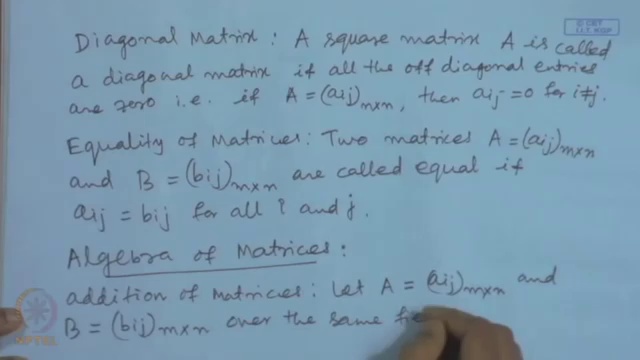 © CET
I.I.T. KGP
Diagonal Matrix : A square matrix A is called
a diagonal matrix if all the off diagonal entries
are zero i.e. if A = (aij)m×n, then aij = 0 for i≠j.
Equality of Matrices : Two matrices A = (aij)m×n
and B = (bij)m×n are called equal if
aij = bij for all i and j.
Algebra of Matrices :
addition of Matrices : Let A = (aij)m×n and
B = (bij)m×n over the same
NPTEL